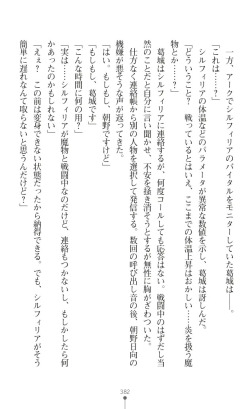 一方、アークでシルフィリアのバイタルをモニターしていた葛城は――。
「これは……？」
シルフィリアの体温などのパラメータが異常な数値を示し、葛城は訝しんだ。
「どういうこと？　戦っているとはいえ、ここまでの体温上昇はおかしい……炎を扱う魔
物とか……？」
葛城はシルフィリアに連絡するが、何度コールしても応答はない。戦闘中のはずだし当
然のことだと自分に言い聞かせ、不安を掻き消そうとするが無性に胸がざわついた。
仕方なく連絡帳から別の人物を選択して発信する。数回の呼び出し音の後、朝野日向の
機嫌が悪そうな声が返ってきた。
「はい。もしもし、朝野ですけど」
「もしもし、葛城です」
「こんな時間に何の用？」
「実は……シルフィリアが魔物と戦闘中なのだけど、連絡もつかないし、もしかしたら何
かあったのかもしれない」
「えぇ？　この前は変身できない状態だったから納得できる。でも、シルフィリアがそう
簡単に遅れなんて取らないと思うんだけど」
382